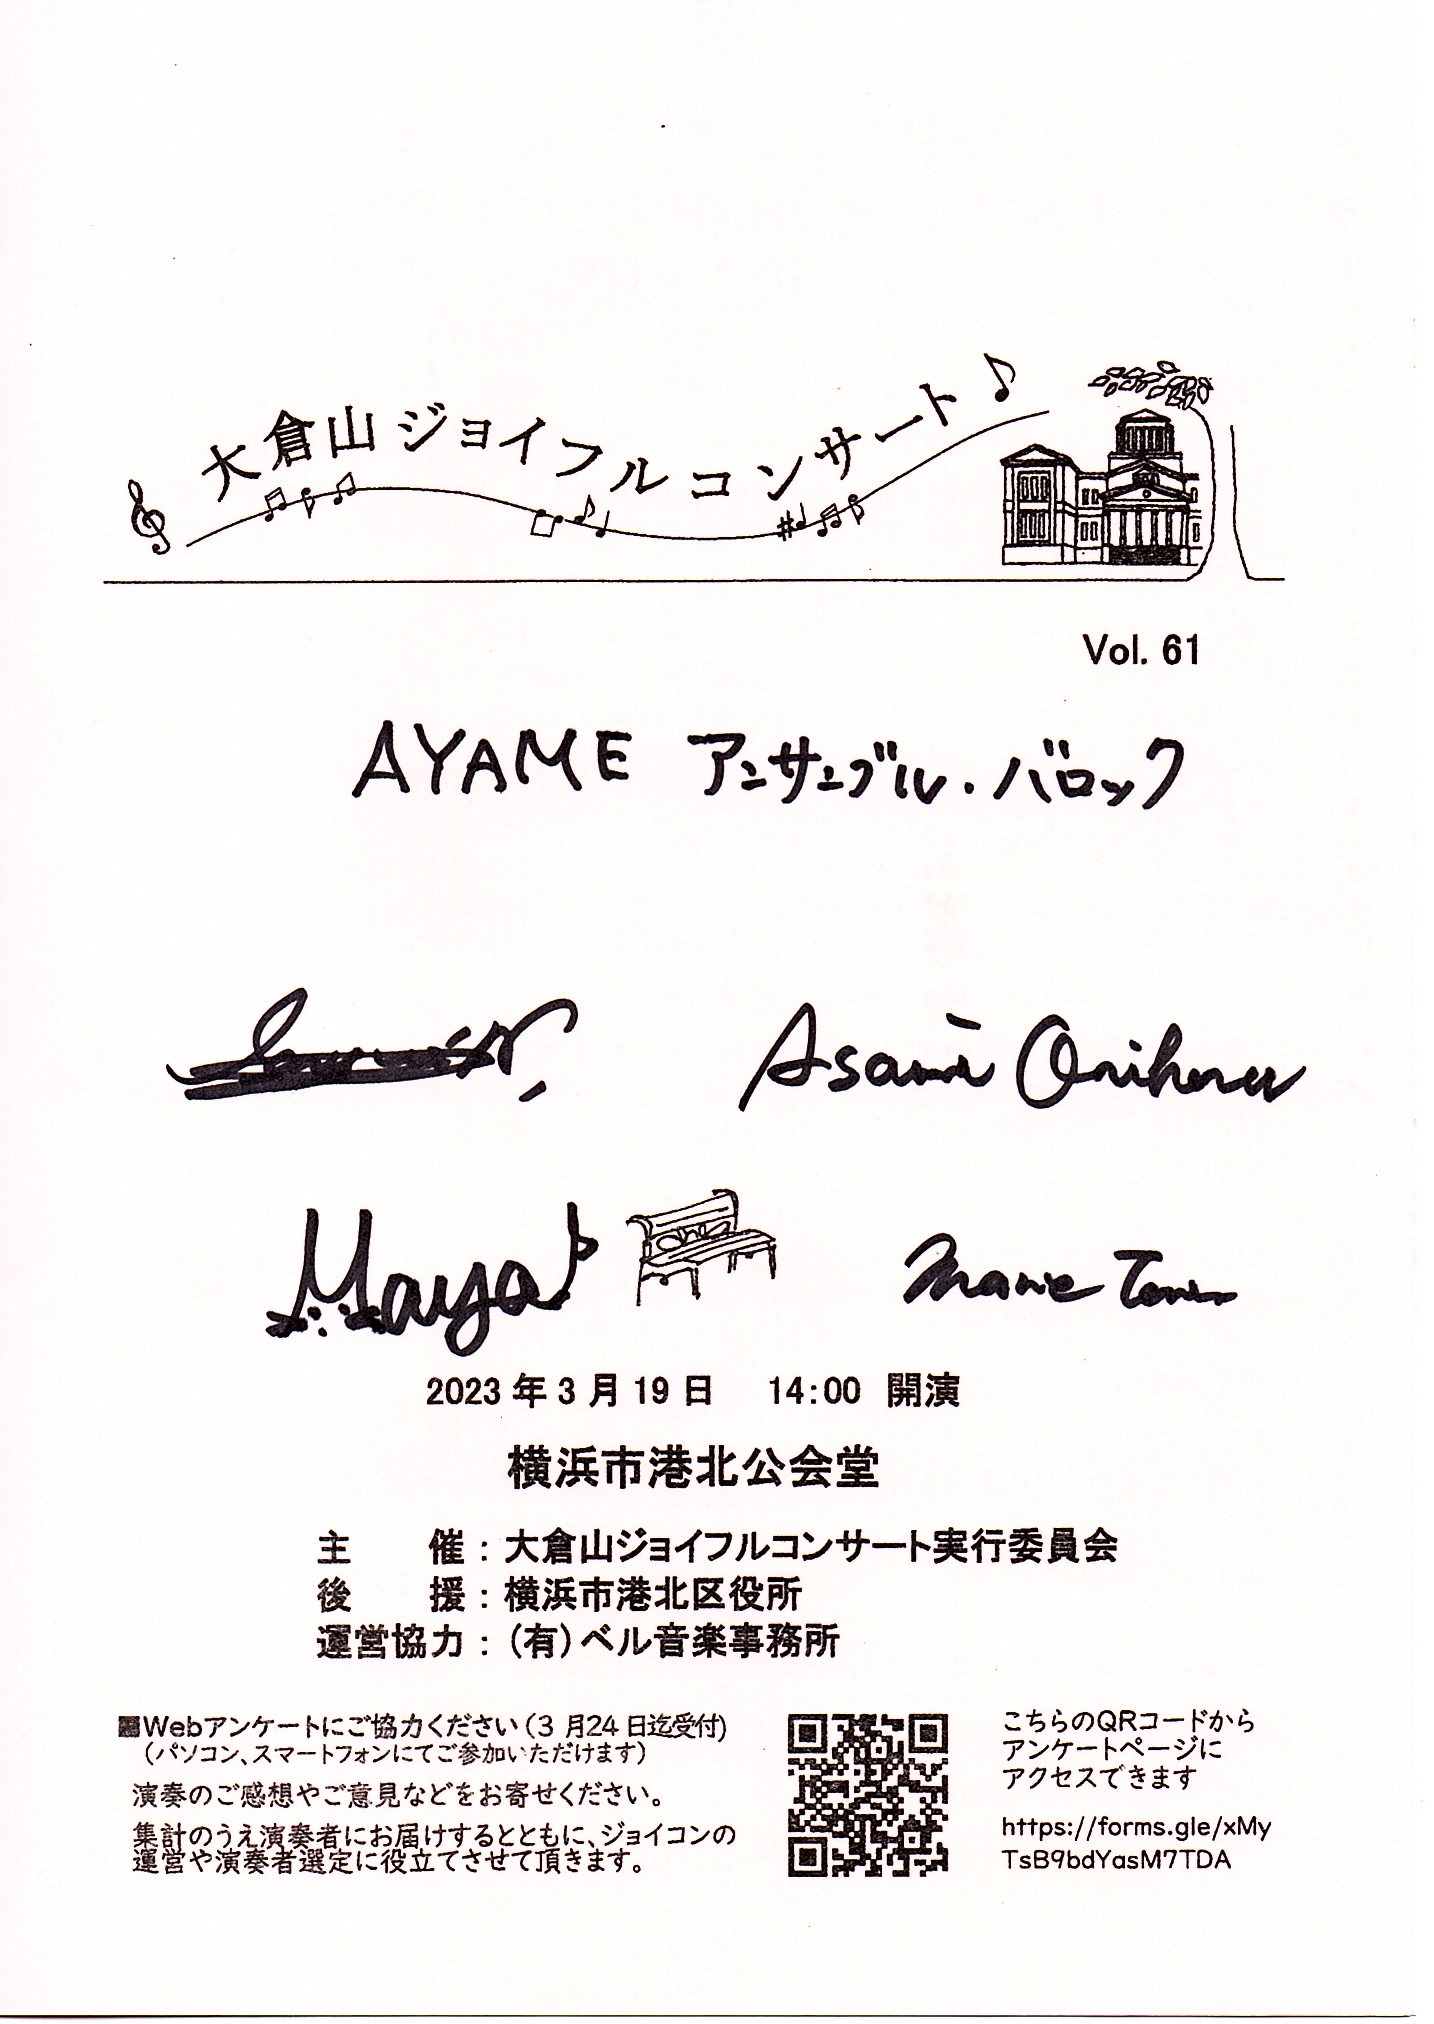 大倉山ジョイフルコンサート
Vol. 61
AYAME アンサンブル・バロック
Asami
Maya
Marie
2023 年 3 月 19 日 14:00 開演
横浜市港北公会堂
主 催：大倉山ジョイフルコンサート実行委員会
後 援：横浜市港北区役所
運営協力：（有）ベル音楽事務所
■Webアンケートにご協力ください（3 月24 日迄受付）
（パソコン、スマートフォンにてご参加いただけます）
演奏のご感想やご意見などをお寄せください。
集計のうえ演奏者にお届けするとともに、ジョイコンの
運営や演奏者選定に役立てさせて頂きます。
こちらのQRコードから
アンケートページに
アクセスできます
https://forms.gle/xMy
TsB9bdYasM7TDA